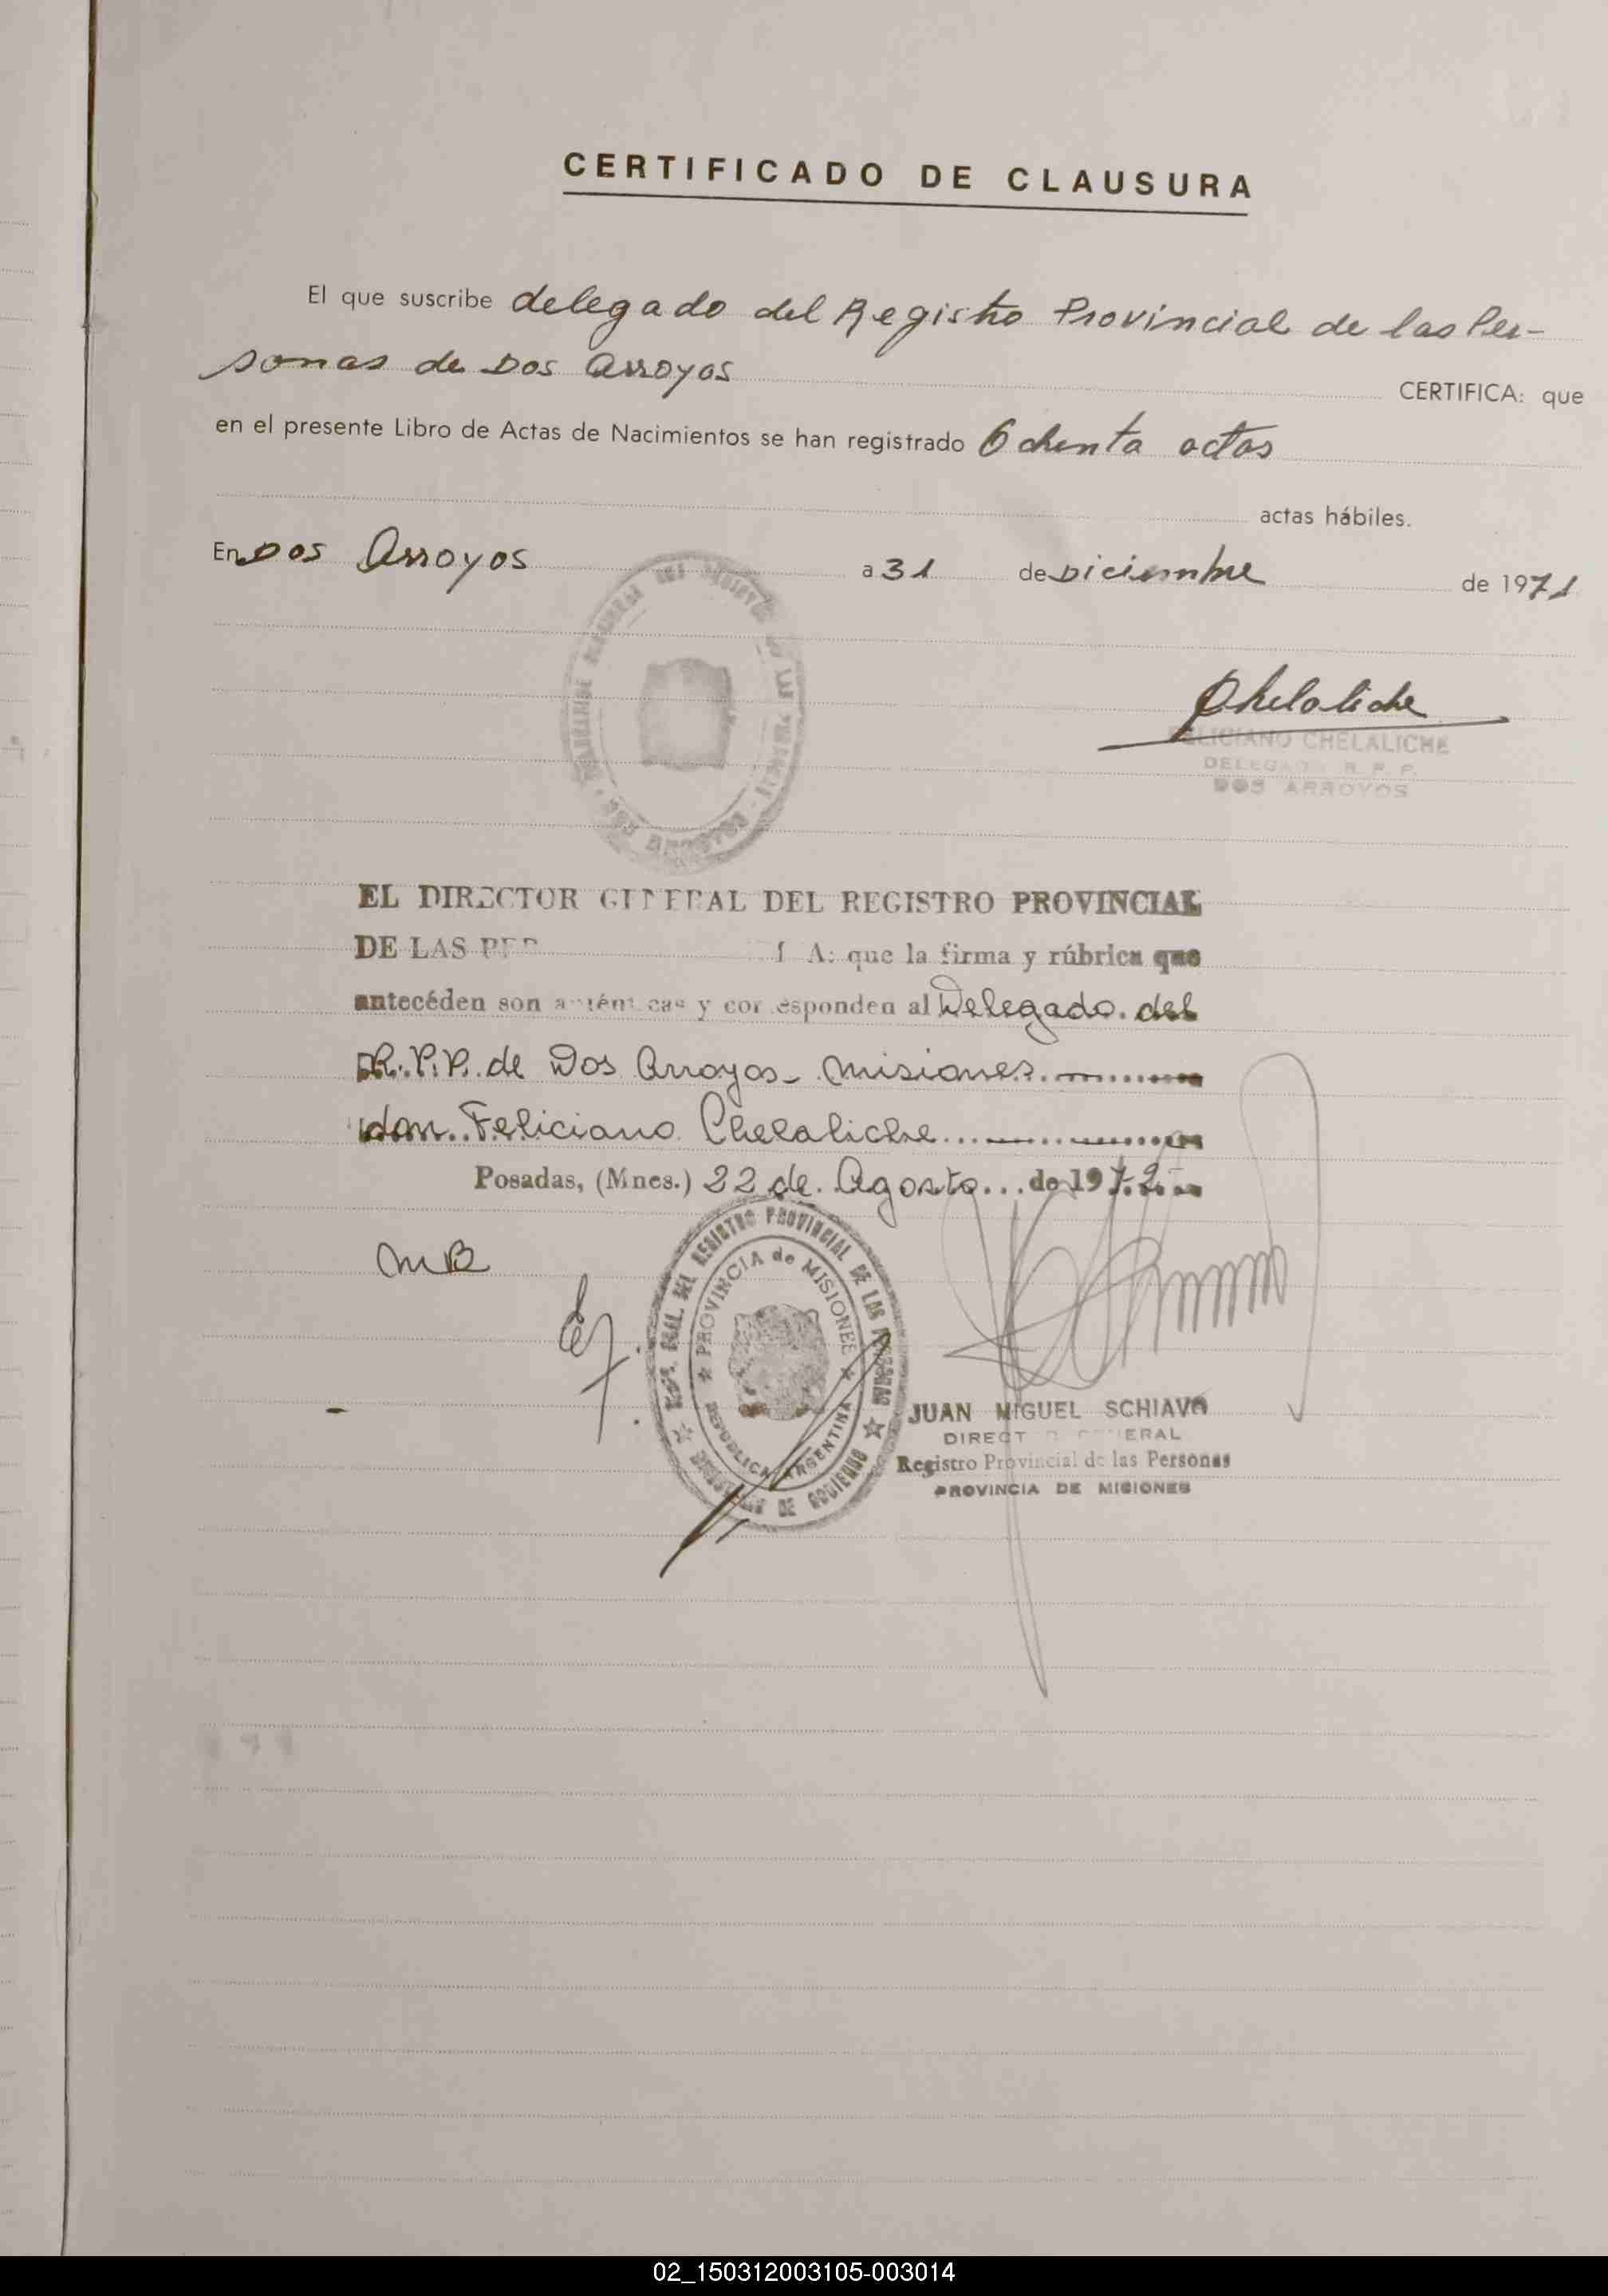 CERTIFICADO DE CLAUSURA
El que suscribe delegado del Registro Provincial de las Per-
sonas de Dos Arroyos CERTIFICA: que
en el presente Libro de Actas de Nacimientos se han registrado Ochenta actas
actas hábiles.
En Dos Arroyos a 31 de Diciembre de 1971
Chelaliche
FELICIANO CHELALICHE
DELEGADO R. P. P.
DOS ARROYOS
EL DIRECTOR GENERAL DEL REGISTRO PROVINCIAL
DE LAS A: que la firma y rúbrica que
antecéden son auténticas y corresponden al Delegado del
R.P.P. de Dos Arroyos - Misiones
don Feliciano Chelaliche
Posadas, (Mnes.) 22 de Agosto de 1972
MB
DEL REGISTRO PROVINCIAL DE LAS PERSONAS
PROVINCIA de MISIONES
REPUBLICA ARGENTINA
DE GOBIERNO
JUAN MIGUEL SCHIAVO
DIRECTOR GENERAL
Registro Provincial de las Personas
PROVINCIA DE MISIONES
02_150312003105-003014